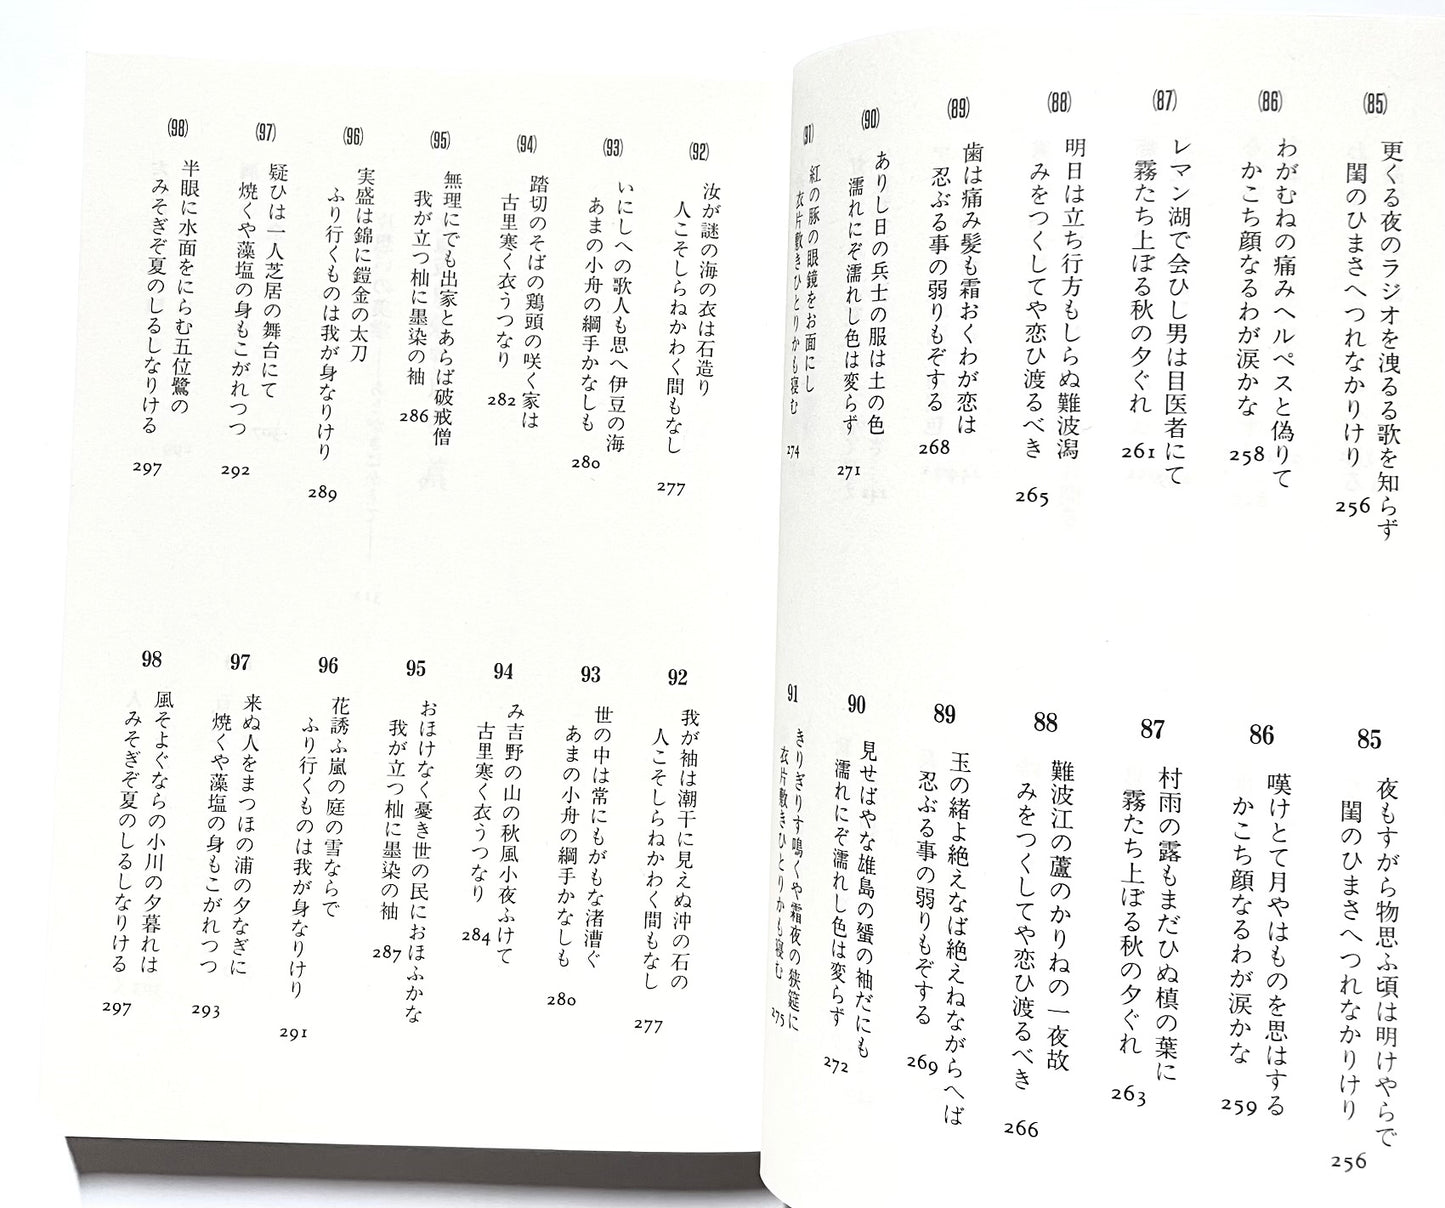 (85)
更くる夜のラジオを洩るる歌を知らず
閨のひまさへつれなかりけり
256
(86)
わがむねの痛みヘルペスと偽りて
かこち顔なるわが涙かな
258
(87)
レマン湖で会ひし男は目医者にて
霧たち上ぼる秋の夕ぐれ
261
(88)
明日は立ち行方もしらぬ難波潟
みをつくしてや恋ひ渡るべき
265
(89)
歯は痛み髪も霜おくわが恋は
忍ぶる事の弱りもぞする
268
(90)
ありし日の兵士の服は土の色
濡れにぞ濡れし色は変らず
271
(91)
紅の豚の眼鏡をお面にし
衣片敷きひとりかも寝む
274
85
夜もすがら物思ふ頃は明けやらで
閨のひまさへつれなかりけり
256
86
嘆けとて月やはものを思はする
かこち顔なるわが涙かな
259
87
村雨の露もまだひぬ槙の葉に
霧たち上ぼる秋の夕ぐれ
263
88
難波江の蘆のかりねの一夜故
みをつくしてや恋ひ渡るべき
266
89
玉の緒よ絶えなば絶えねながらへば
忍ぶる事の弱りもぞする
269
90
見せばやな雄島の蜑の袖だにも
濡れにぞ濡れし色は変らず
272
91
きりぎりす鳴くや霜夜の狭筵に
衣片敷きひとりかも寝む
275
(92)
汝が謎の海の衣は石造り
人こそしらねかわく間もなし
277
(93)
いにしへの歌人も思へ伊豆の海
あまの小舟の綱手かなしも
280
(94)
踏切のそばの鶏頭の咲く家は
古里寒く衣うつなり
282
(95)
無理にでも出家とあらば破戒僧
我が立つ杣に墨染の袖
286
(96)
実盛は錦に鎧金の太刀
ふり行くものは我が身なりけり
289
(97)
疑ひは一人芝居の舞台にて
焼くや藻塩の身もこがれつつ
292
(98)
半眼に水面をにらむ五位鷺の
みそぎぞ夏のしるしなりける
297
92
我が袖は潮干に見えぬ沖の石の
人こそしらねかわく間もなし
277
93
世の中は常にもがもな渚漕ぐ
あまの小舟の綱手かなしも
280
94
み吉野の山の秋風小夜ふけて
古里寒く衣うつなり
284
95
おほけなく憂き世の民におほふかな
我が立つ杣に墨染の袖
287
96
花誘ふ嵐の庭の雪ならで
ふり行くものは我が身なりけり
291
97
来ぬ人をまつほの浦の夕なぎに
焼くや藻塩の身もこがれつつ
293
98
風そよぐならの小川の夕暮れは
みそぎぞ夏のしるしなりける
297